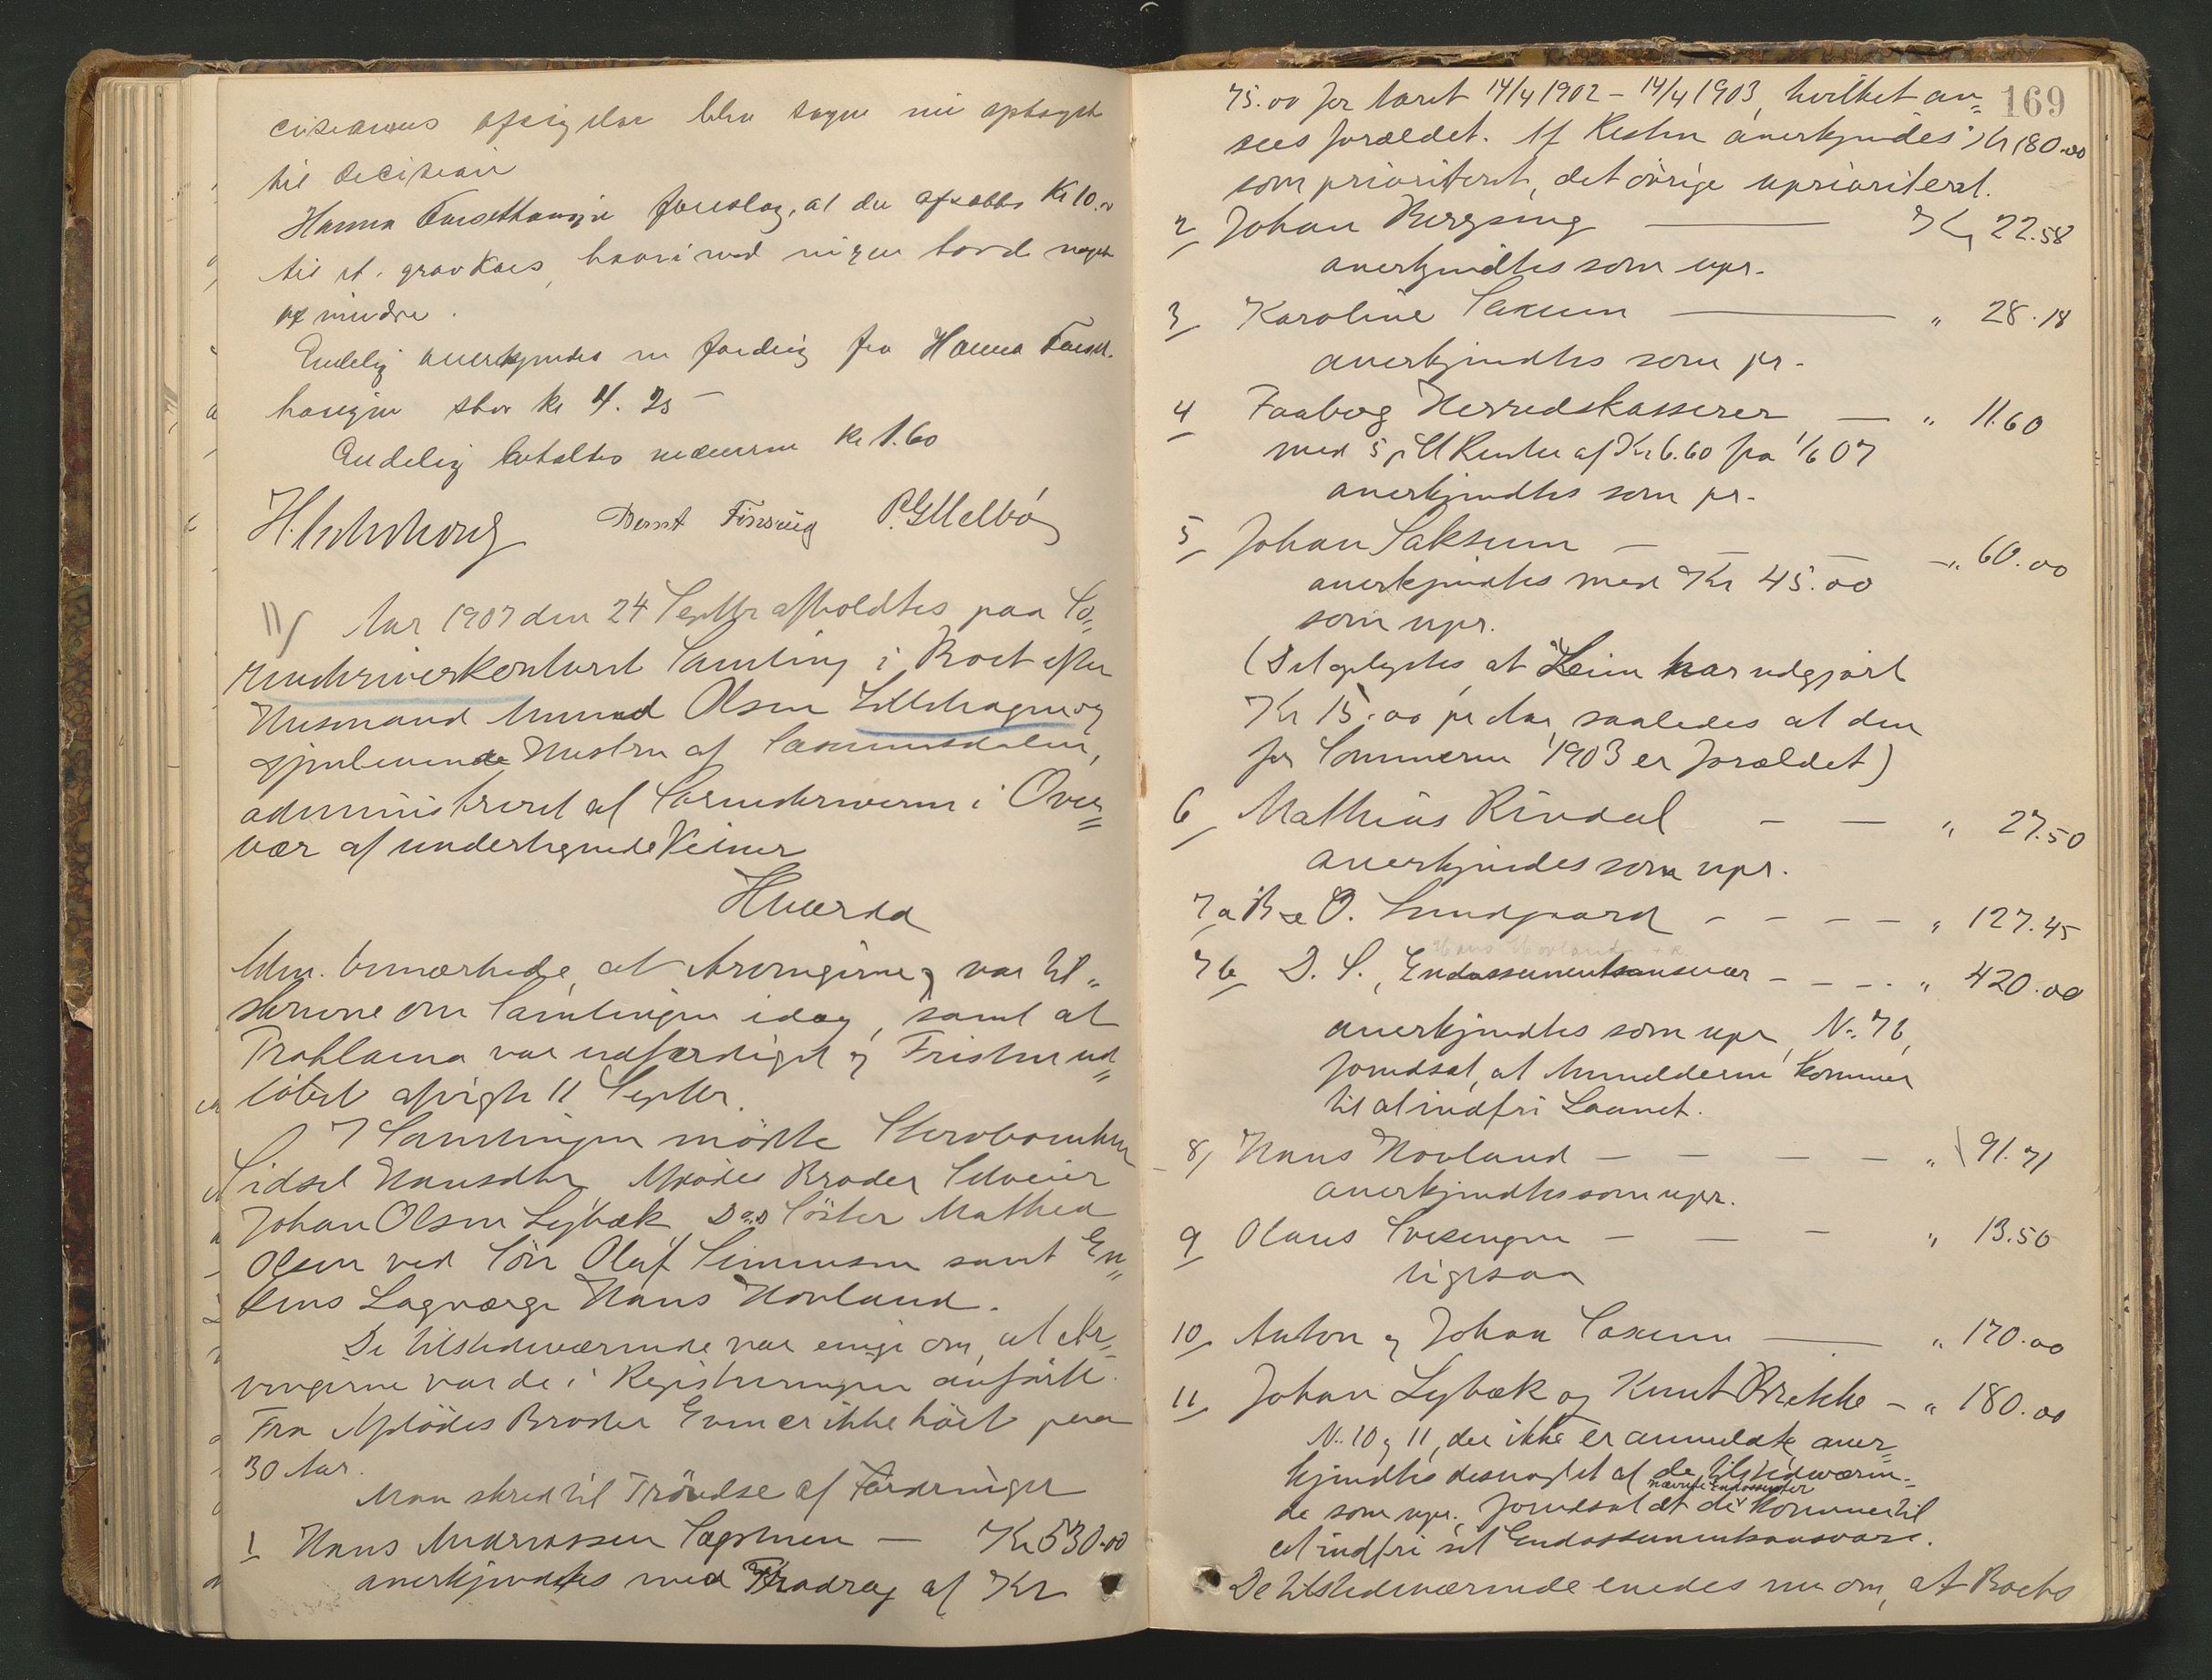 afsigelse blev sagen nu optaget
til decision
Hanna foreslog, at der afsattes Kr 10.00
til et gravkors, hvori med nogen
og mindre.
Endelig anerkjendes en fordring fra Hanna
haugen stor kr 4.25
Endelig betaltes vidnerne kr 1.60
Bernt P. G. Melbö
11/ Aar 1907 den 24 Septbr afholdtes paa So-
renskriverkontoret Samling i Boet efter
Husmand Amund Olsen Lillehagen og
gjenlevende Hustru af Saxumsdalen,
administreret af Sorenskriveren i Over=
vær af undertegnede Vidner
Hværda
Adm. bemærkede, at Arvingerne var til=
skrevne om Samlingen idag, samt at
Proklama var udfærdiget og Fristen ud=
löbet afvigte 11 Septbr.
I Samlingen mödte Sterboenken
Sidsel Hansdtr, Afdödes Broder Selveier
Johan Olsen Lybæk, Do Söster Mathea
Olsen ved Sön Olaf Simensen samt En=
kens Lagværge Hans Hovland.
De tilstedeværende var enige om, at Ar-
vingerne var de i Registreringen anförte.
Fra Afdödes Broder Even er ikke hört paa
30 Aar.
Man skred til Prövelse af Fordringer
1 Hans Andreassen Sagstuen — Kr 530.00
anerkjendtes med Fradrag af Kr
169
75.00 for Aaret 14/4 1902 – 14/4 1903, hvilket an=
sees forældet. Af Resten anerkjendes Kr 180.00
som prioriteret, det övrige uprioriteret.
2/ Johan Bergseng — Kr 22.58
anerkjendtes som upr.
3/ Karoline Saxum — " 28.18
anerkjendtes som pr.
4 Faaberg Herredskasserer — " 11.60
med 5 pCt Renter af Kr 6.60 fra 1/6 07
anerkjendtes som pr.
5/ Johan Saksum — — — " 60.00
anerkjendtes med Kr 45.00
som upr.
(Det oplystes at Leien har udgjort
Kr 15.00 pr Aar, saaledes at den
for Sommeren 1903 er forældet)
6/ Mathias Rindal — — " 27.50
anerkjendes som upr.
7a O. Lundgaard — — — — " 127.45
7b D. S., Endossementsansvar — — — " 420.00
anerkjendtes som upr, No 7b,
forudsat, at Anmelderen kommer
til at indfri Laanet.
8/ Hans Hovland — — — — " 91.71
anerkjendtes som upr.
9 Olaus — — — " 13.50
ligesaa
10/ Anton og Johan Saxum — " 170.00
11 Johan Lybæk og Knut Brekke — " 180.00
No 10 og 11, der ikke er anmeldt, aner=
kjendtes desuagtet af de tilstedeværen-
nævnte Endossenter
de som upr. forudsat at de kommer til
at indfri sit Endossementsansvar.
De tilstedeværende enedes nu om, at Boets